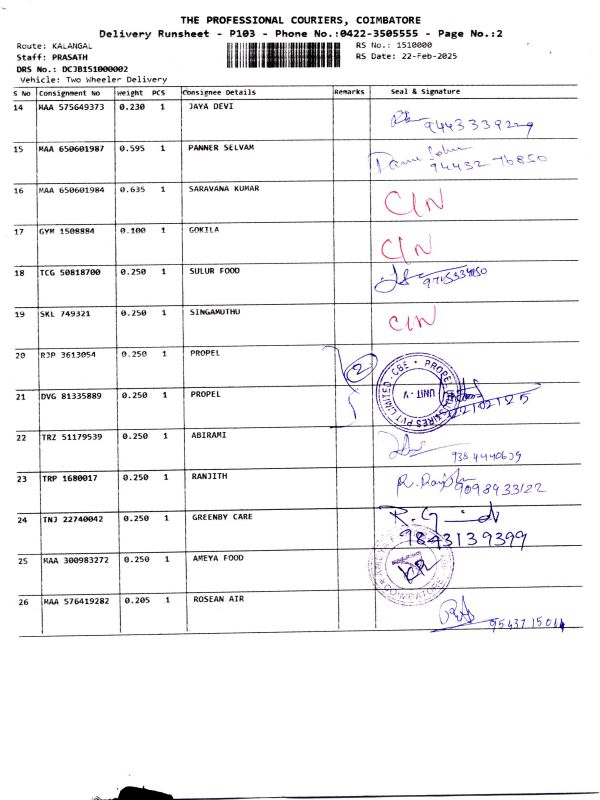 THE PROFESSIONAL COURIERS, COIMBATORE
Delivery Runsheet - P103 - Phone No.:0422-3505555 - Page No.:2
Route: KALANGAL RS No.: 1510000
Staff: PRASATH RS Date: 22-Feb-2025
DRS No.: DCJB151000002
Vehicle: Two Wheeler Delivery
S No Consignment No Weight PCS Consignee Details Remarks Seal & Signature
14 MAA 575649373 0.230 1 JAYA DEVI
9443339229
15 MAA 650601987 0.595 1 PANNER SELVAM
94432 76850
16 MAA 650601984 0.635 1 SARAVANA KUMAR C/N
17 GYM 1508884 0.100 1 GOKILA C/N
18 TCG 50818700 0.250 1 SULUR FOOD
19 SKL 749321 0.250 1 SINGAMUTHU C/N
20 RJP 3613054 0.250 1 PROPEL 2
21 DVG 81335889 0.250 1 PROPEL UNIT - V
22/02/25
22 TRZ 51179539 0.250 1 ABIRAMI
9384440639
23 TRP 1680017 0.250 1 RANJITH
9098433122
24 TNJ 22740042 0.250 1 GREENBY CARE
9843139399
25 MAA 300983272 0.250 1 AMEYA FOOD COIMBATORE
26 MAA 576419282 0.205 1 ROSEAN AIR